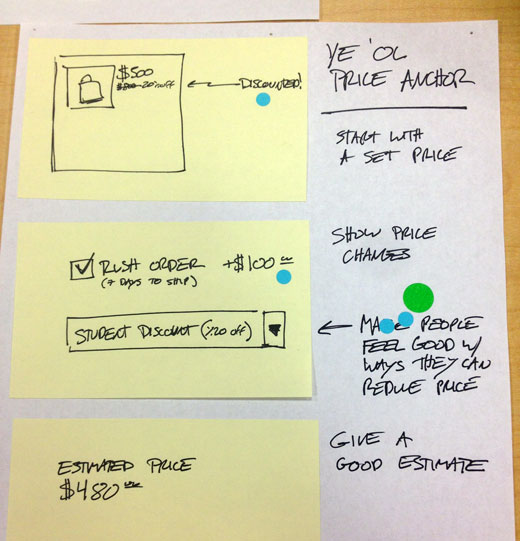 $500
20% off
DISCOUNTED!
YE 'OL
PRICE ANCHOR
START WITH
A SET PRICE
RUSH ORDER +$100
(7 DAYS TO SHIP)
STUDENT DISCOUNT (%20 off)
SHOW PRICE
CHANGES
PEOPLE
FEEL GOOD W/
WAYS THEY CAN
REDUCE PRICE
ESTIMATED PRICE
$480
GIVE A
GOOD ESTIMATE